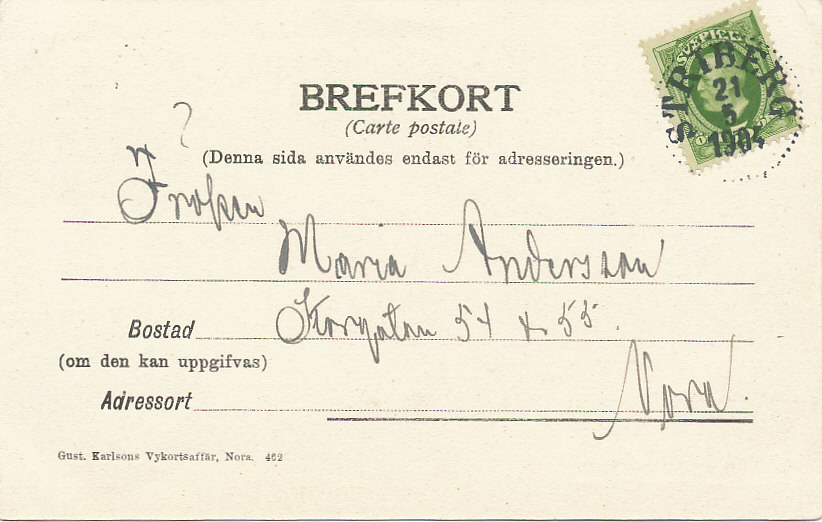 SVERIGE
STRIBERG
21
5
1904
BREFKORT
(Carte postale)
?
(Denna sida användes endast för adresseringen.)
Fröken
Maria Andersson
Bostad Storgatan 54 & 55.
(om den kan uppgifvas)
Adressort Nora.
Gust. Karlsons Vykortsaffär, Nora. 462